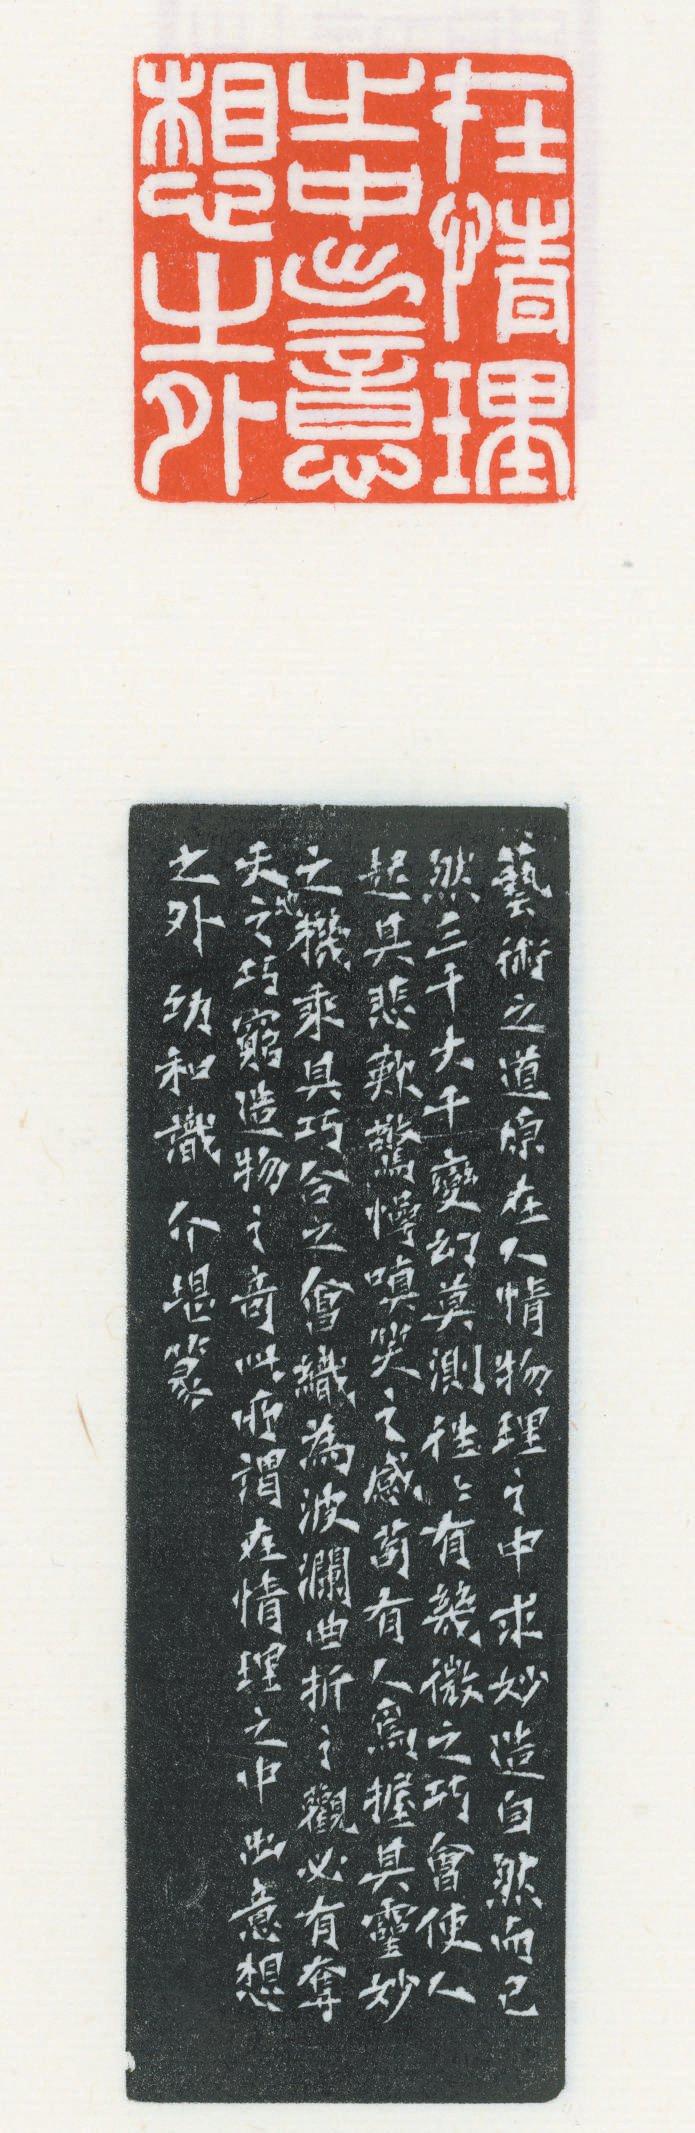 在情理
之中出意
想之外
藝術之道原在人情物理之中求妙造自然而已
然三千大千變幻莫測往〻有幾微之巧會使人
起其悲歡驚愕嗔笑之感苟有人焉握其靈妙
之機乘其巧合之會織為波瀾曲折之觀必有奪
天地之巧窮造物之奇此所謂在情理之中出意想
之外 幼和識 介堪篆